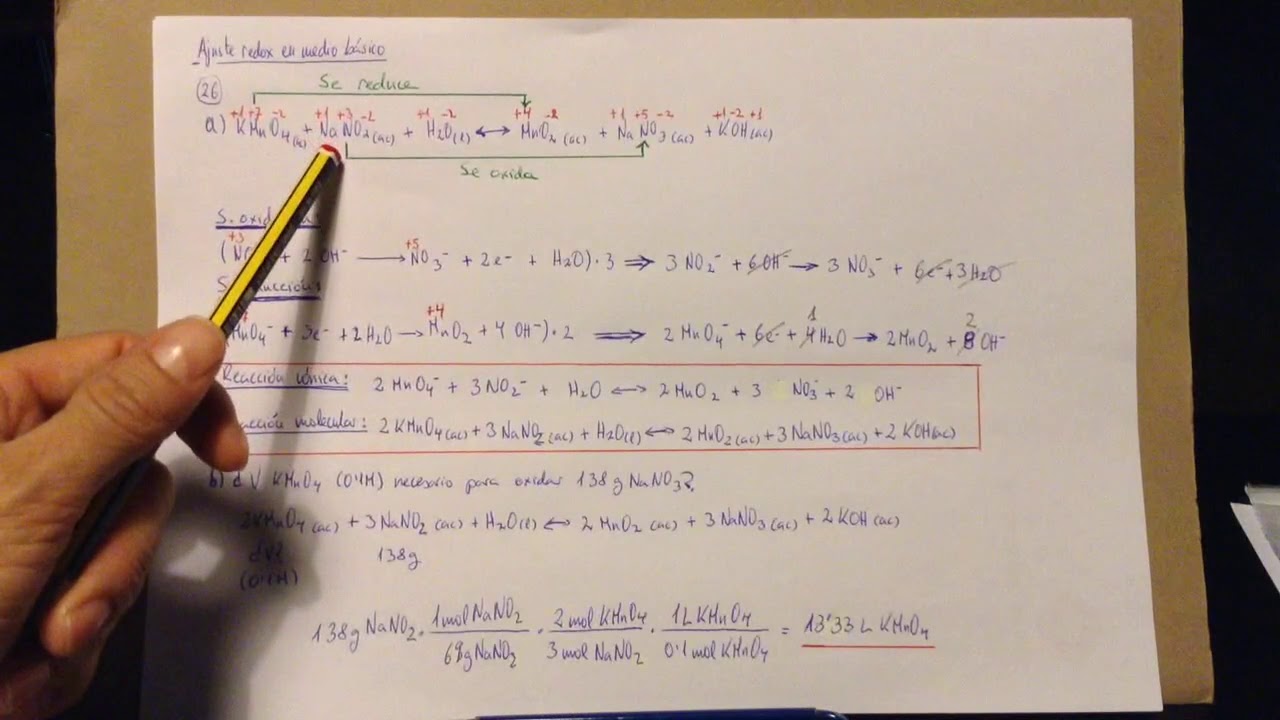 Ajuste redox en medio básico
26
Se reduce
+1 +7 -2 +1 +3 -2 +1 -2 +4 -2 +1 +5 -2 +1 -2 +1
a) KMnO4(ac) + NaNO2(ac) + H2O(l) ⟷ MnO2(ac) + NaNO3(ac) + KOH(ac)
Se oxida
+3 +5
+ 2 OH⁻ ⟶ NO3⁻ + 2e⁻ + H2O)·3 ⟹ 3 NO2⁻ + 6OH⁻ ⟶ 3 NO3⁻ + 6e⁻ + 3H2O
+4 1 2
MnO4⁻ + 3e⁻ + 2H2O ⟶ MnO2 + 4 OH⁻)·2 ⟹ 2 MnO4⁻ + 6e⁻ + 4H2O ⟶ 2MnO2 + 8 OH⁻
Reacción iónica: 2 MnO4⁻ + 3 NO2⁻ + H2O ⟷ 2 MnO2 + 3 NO3⁻ + 2 OH⁻
molecular: 2 KMnO4(ac) + 3 NaNO2(ac) + H2O(l) ⟷ 2 MnO2(ac) + 3 NaNO3(ac) + 2 KOH(ac)
b) ¿V KMnO4 (0'1M) necesario para oxidar 138 g NaNO3?
2KMnO4(ac) + 3 NaNO2(ac) + H2O(l) ⟷ 2 MnO2(ac) + 3 NaNO3(ac) + 2 KOH(ac)
¿V? 138g
(0'1M)
138g NaNO2 · 1mol NaNO2/69g NaNO2 · 2 mol KMnO4/3 mol NaNO2 · 1L KMnO4/0'1 mol KMnO4 = 13'33 L KMnO4